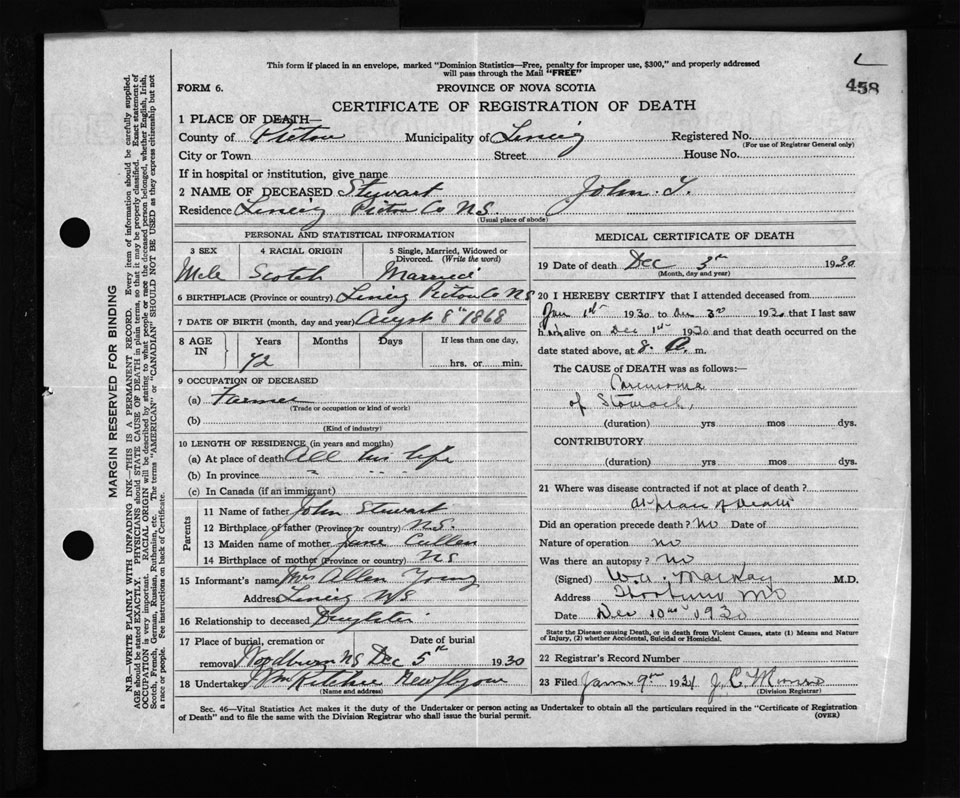 This form if placed in an envelope, marked "Dominion Statistics—Free, penalty for improper use, $300," and properly addressed
will pass through the Mail "FREE"
458
FORM 6.
PROVINCE OF NOVA SCOTIA
CERTIFICATE OF REGISTRATION OF DEATH
1 PLACE OF DEATH—
County of Pictou Municipality of Registered No.
(For use of Registrar General only)
City or Town Street House No.
If in hospital or institution, give name
2 NAME OF DECEASED Stewart John
Residence Pictou Co NS.
(Usual place of abode)
PERSONAL AND STATISTICAL INFORMATION
3 SEX 4 RACIAL ORIGIN 5 Single, Married, Widowed or Divorced. (Write the word)
Male Scotch Married
6 BIRTHPLACE (Province or country) Pictou Co NS
7 DATE OF BIRTH (month, day and year) August 8th 1868
8 AGE IN Years Months Days If less than one day,
72 hrs. or min.
9 OCCUPATION OF DECEASED
(a) Farmer
(Trade or occupation or kind of work)
(b)
(Kind of industry)
10 LENGTH OF RESIDENCE (in years and months)
(a) At place of death All his life
(b) In province " " "
(c) In Canada (if an immigrant)
Parents
11 Name of father John Stewart
12 Birthplace of father (Province or country) N.S.
13 Maiden name of mother Jane Cullen
14 Birthplace of mother (Province or country) NS
15 Informant's name Mrs Allen Young
Address NS
16 Relationship to deceased Daughter
17 Place of burial, cremation or removal Date of burial
Woodburn NS Dec 5th 1930
18 Undertaker Ritchie New Glasgow
(Name and address)
MEDICAL CERTIFICATE OF DEATH
19 Date of death Dec 3rd 1930
(Month, day and year)
20 I HEREBY CERTIFY that I attended deceased from
Jan 1st 1930 to Dec 3rd 1930 that I last saw
him alive on Dec 1st 1930 and that death occurred on
date stated above, at 8. A. m.
The CAUSE OF DEATH was as follows:—
Carcinoma
of Stomach,
(duration) yrs mos dys.
CONTRIBUTORY
(duration) yrs mos dys.
21 Where was disease contracted if not at place of death?
At place of Death
Did an operation precede death? No Date of
Nature of operation no
Was there an autopsy? No
(Signed) W.A. MacKay M.D.
Address
Date Dec 10th 1930
State the Disease causing Death, or in death from Violent Causes, state (1) Means and Nature
of Injury, (2) whether Accidental, Suicidal or Homicidal.
22 Registrar's Record Number
23 Filed Jan 9th 1931 J. C. Munro
(Division Registrar)
Sec. 46—Vital Statistics Act makes it the duty of the Undertaker or person acting as Undertaker to obtain all the particulars required in the "Certificate of Registration
of Death" and to file the same with the Division Registrar who shall issue the burial permit.
(OVER)
MARGIN RESERVED FOR BINDING
N.B.—WRITE PLAINLY WITH UNFADING INK—THIS IS A PERMANENT RECORD. Every item of information should be carefully supplied.
AGE should be stated EXACTLY. PHYSICIANS should STATE CAUSE OF DEATH in plain terms, so that it may be properly classified. Exact statement of
OCCUPATION is very important. RACIAL ORIGIN will be described by stating to what people or race the deceased person belonged, whether English, Irish,
Scotch, French, German, Russian, Ruthenian, etc. The terms "AMERICAN" or "CANADIAN" SHOULD NOT BE USED as they express citizenship but not
a race or people. See instructions on back of Certificate.